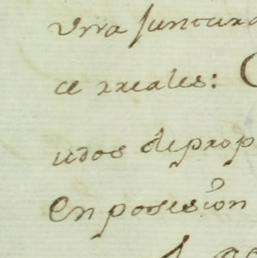 una juntura
ce rreales:
udos deprop
En posesion